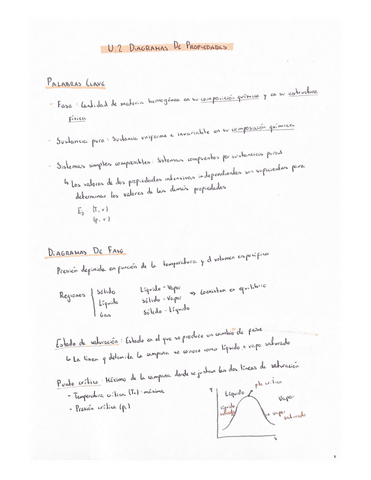 U.2 DIAGRAMAS DE PROPIEDADES
PALABRAS CLAVE
- Fase: Cantidad de materia homogénea en su composición química y en su estructura
física
- Sustancia pura: Sustancia uniforme e invariable en su composición química
- Sistemas simples compresibles: Sistemas compuestos por sustancias puras
↳ Los valores de dos propiedades intensivas independientes son suficientes para
determinar los valores de las demás propiedades
Ej (T, v)
(p, v)
DIAGRAMAS DE FASE
Presión definida en función de la temperatura y el volumen específico
Regiones Sólido Líquido - Vapor
Líquido Sólido - Vapor ⇒ Coexisten en equilibrio
Gas Sólido - Líquido
Estado de saturación: Estado en el que se produce un cambio de fase
↳ La línea que delimita la campana se conoce como líquido o vapor saturado
Punto crítico: Máximo de la campana donde se juntan las dos líneas de saturación
- Temperatura crítica (Tc) máxima
- Presión crítica (pc)
T
pto crítico
Líquido
Vapor
líquido
saturado
vapor
saturado